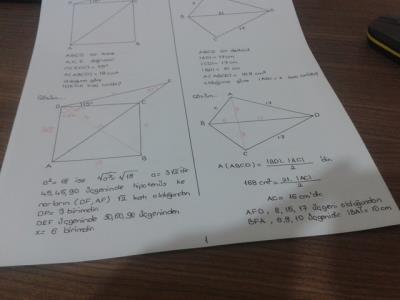 ABCD bir kare
A, C, E doğrusal
A(ABCD) = 18 cm²
Çözüm...
D
C
A
B
a² = 18 ise √a² = √18 a = 3√2 dir
45, 45, 90 üçgeninde hipotenüs ke
narların (DF, AF) √2 katı olduğundan
DF = 3 birimdir
DEF üçgeninde 30, 60, 90 üçgeninden
x = 6 birimdir
21
17
ABCD bir deltoid
|AD| = 17cm
|CD| = 17cm
|BD| = 21 cm
A(ABCD) = 168 cm²
olduğuna göre
Çözüm...
A
17
B
D
17
C
A(ABCD) = |BD|.|AC| / 2 'dir
168 cm² = 21.|AC| / 2
AC = 16 cm'dir
AFD, 8, 15, 17 üçgeni olduğundan
BFA, 6, 8, 10 üçgeninde |BA| = 10 cm
1